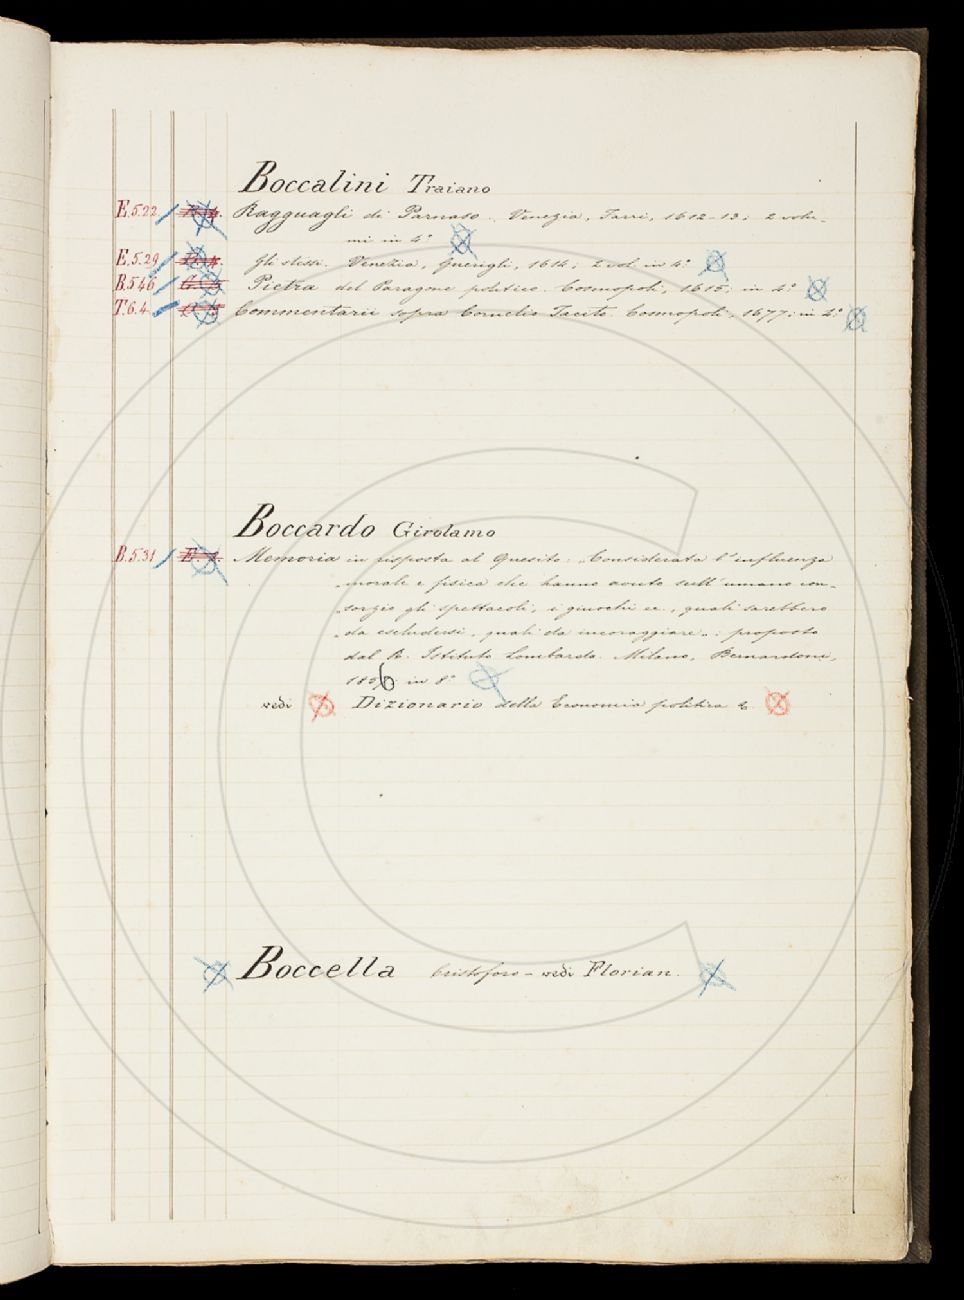 Boccalini Traiano
E.5.22 Ragguagli di Parnaso. Venezia, Farri, 1612-13; 2 volu-
mi in 4°
E.5.29 Gli stessi. Venezia, Guerigli, 1614; 2 vol. in 4°
B.5.46 Pietra del Paragone politico. Cosmopoli, 1615; in 4°
T.6.4 Commentarii sopra Cornelio Tacito. Cosmopoli, 1677; in 4°
Boccardo Girolamo
B.5.31 Memoria in risposta al Quesito: „Considerata l'influenza
„morale e fisica che hanno avuto sull'umano con-
„sorzio gli spettacoli, i giuochi ec., quali sarebbero
„da escludersi, quali da incoraggiare„: proposto
dal R. Istituto Lombardo. Milano, Bernardoni,
1856 in 8°
vedi Dizionario della Economia politica &
Boccella Cristoforo - vedi Florian.